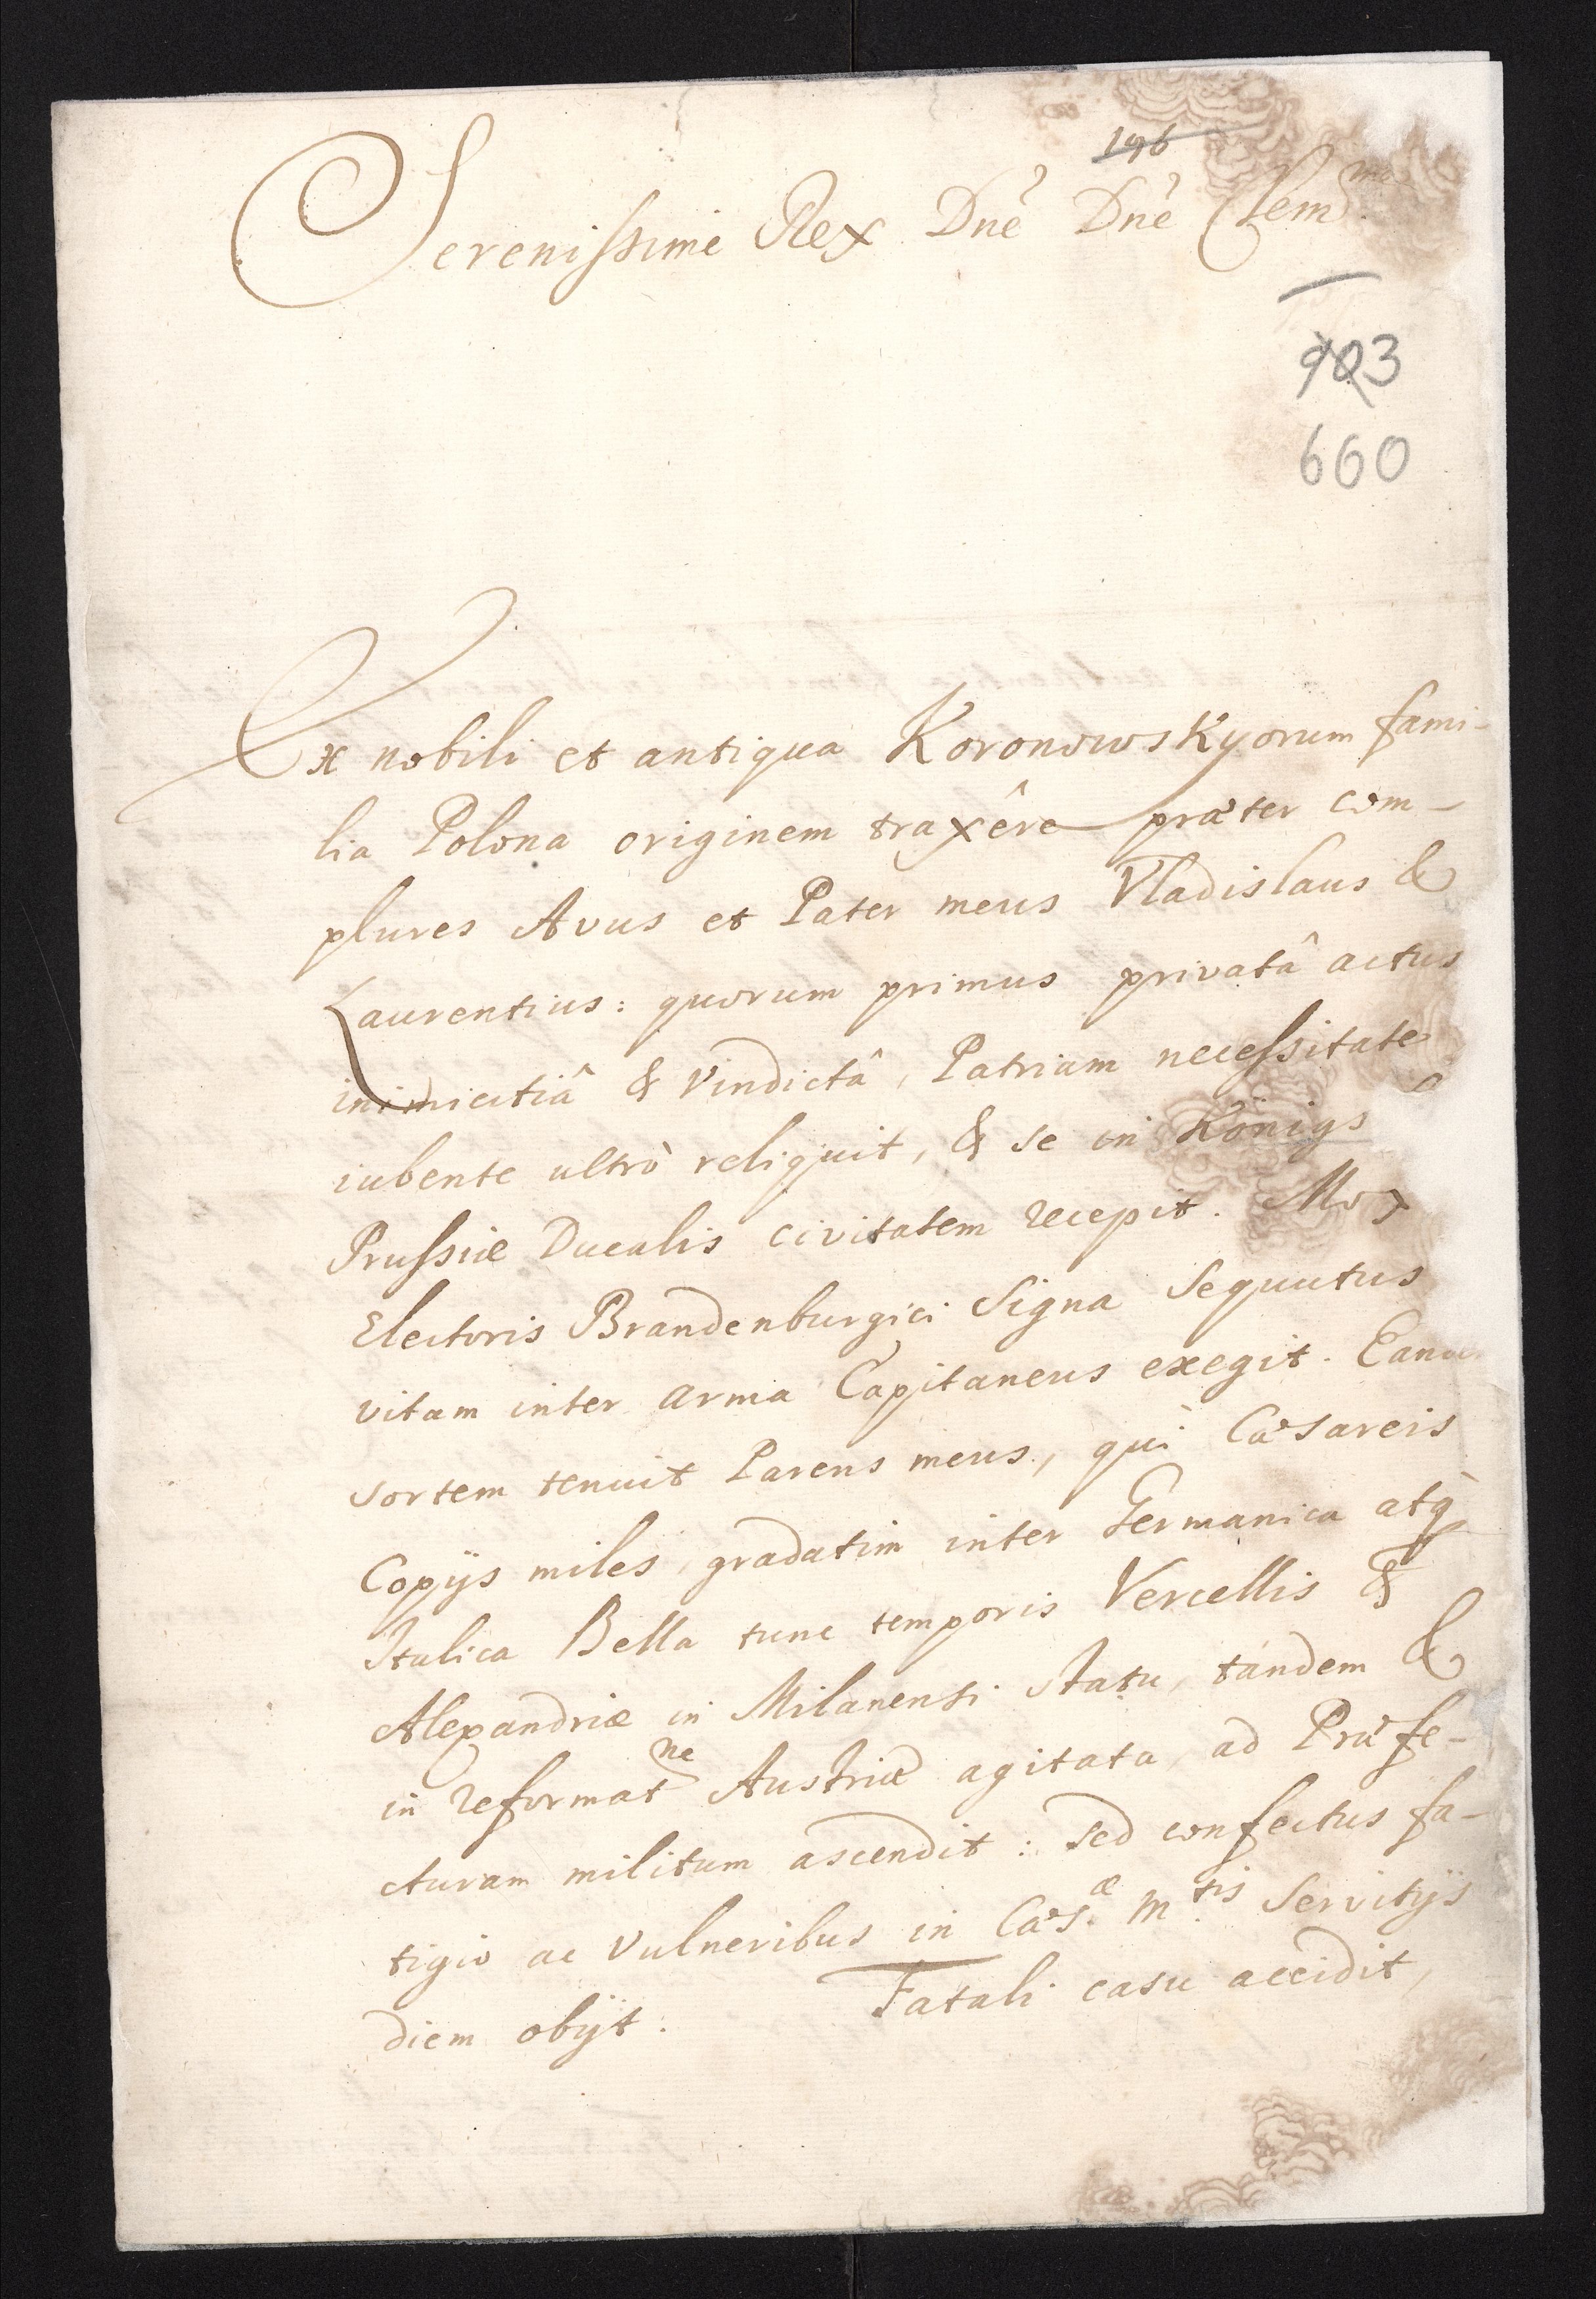 196
Serenissime Rex Dnē Dnē Clem^me
903
660
Ex nobili et antiqua Koronowskyorum fami-
lia Polona originem traxêre præter com-
plures Avus et Pater meus Vladislaus &
Laurentius: quorum primus privatâ actus
inimicitiâ & vindictâ, Patriam necessitate
iubente ultrò reliquit, & se in Königs
Prussiæ Ducalis civitatem recepit. Mox
Electoris Brandenburgici Signa Sequutus
vitam inter arma Capitaneus exegit.
sortem tenuit Parens meus, qui Cæsareis
Copijs miles, gradatim inter Germanica atq́
Italica Bella tunc temporis Vercellis &
Alexandriæ in Milanensi statu, tandem &
in reformat^ne Austriæ agitata, ad Præfe-
cturam militum ascendit: sed confectus fa-
tigio ac vulneribus in Cæs.^æ M.^tis Servitijs
diem obijt. Fatali casu accidit,